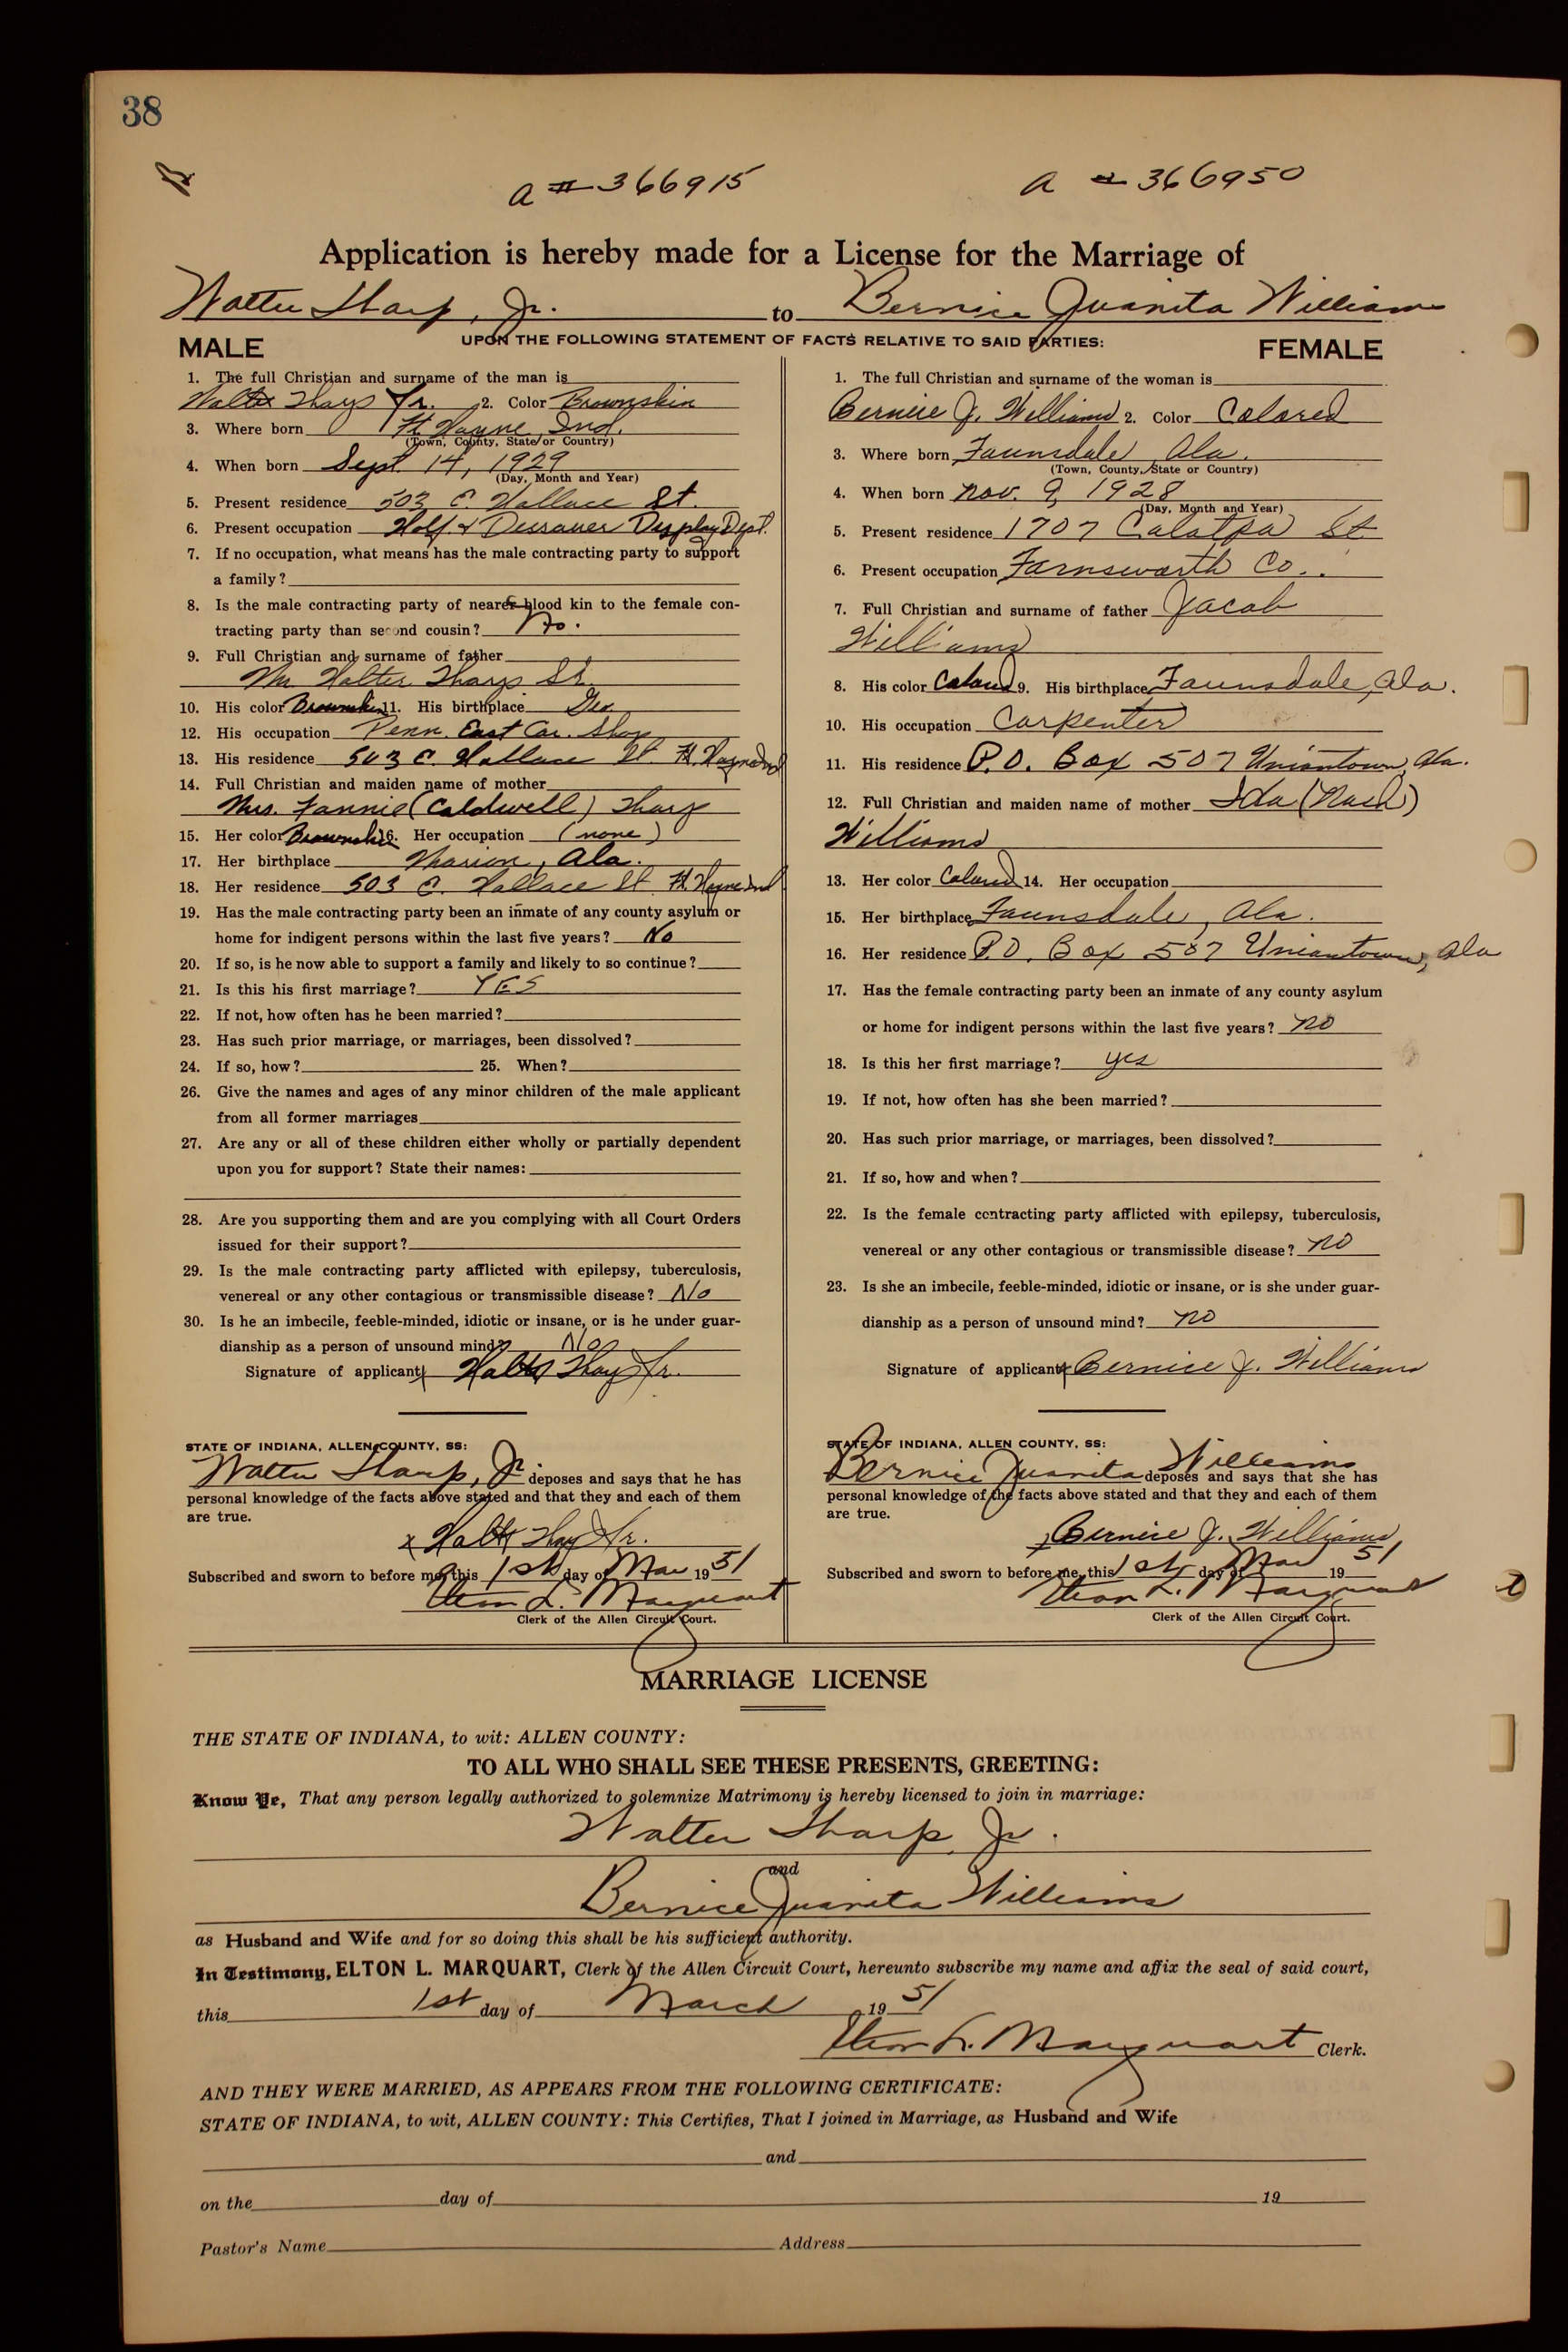 38
a # 366915 a # 366950
Application is hereby made for a License for the Marriage of
Walter Sharp, Jr. to Bernice Juanita Williams
UPON THE FOLLOWING STATEMENT OF FACTS RELATIVE TO SAID PARTIES:
MALE
1. The full Christian and surname of the man is
Walter Sharp Jr. 2. Color Brownskin
3. Where born Ft Wayne Ind.
(Town, County, State or Country)
4. When born Sept 14, 1929
(Day, Month and Year)
5. Present residence 503 E. Wallace St.
6. Present occupation Wolf & Dessauer Display Dept.
7. If no occupation, what means has the male contracting party to support
a family?
8. Is the male contracting party of nearer blood kin to the female con-
tracting party than second cousin? No.
9. Full Christian and surname of father
Mr Walter Sharp Sr.
10. His color Brownskin 11. His birthplace Geo
12. His occupation Penn. East Car. Shop
13. His residence 503 E. Wallace St Ft. Wayne Ind
14. Full Christian and maiden name of mother
Mrs. Fannie (Caldwell) Sharp
15. Her color Brownskin 16. Her occupation (none)
17. Her birthplace Marion, Ala.
18. Her residence 503 E. Wallace St Ft. Wayne Ind
19. Has the male contracting party been an inmate of any county asylum or
home for indigent persons within the last five years? No
20. If so, is he now able to support a family and likely to so continue?
21. Is this his first marriage? YES
22. If not, how often has he been married?
23. Has such prior marriage, or marriages, been dissolved?
24. If so, how? 25. When?
26. Give the names and ages of any minor children of the male applicant
from all former marriages
27. Are any or all of these children either wholly or partially dependent
upon you for support? State their names:
28. Are you supporting them and are you complying with all Court Orders
issued for their support?
29. Is the male contracting party afflicted with epilepsy, tuberculosis,
venereal or any other contagious or transmissible disease? No
30. Is he an imbecile, feeble-minded, idiotic or insane, or is he under guar-
dianship as a person of unsound mind? No
Signature of applicant x Walter Sharp Jr.
STATE OF INDIANA, ALLEN COUNTY, SS:
Walter Sharp, Jr deposes and says that he has
personal knowledge of the facts above stated and that they and each of them
are true.
x Walter Sharp Jr.
Subscribed and sworn to before me, this 1st day of Mar 1951
Elton L. Marquart
Clerk of the Allen Circuit Court.
FEMALE
1. The full Christian and surname of the woman is
Bernice J. Williams 2. Color Colored
3. Where born Faunsdale Ala.
(Town, County, State or Country)
4. When born Nov. 9, 1928
(Day, Month and Year)
5. Present residence 1707 Calatpa St
6. Present occupation Farnsworth Co.
7. Full Christian and surname of father Jacob
Williams
8. His color Colored 9. His birthplace Faunsdale, Ala.
10. His occupation Carpenter
11. His residence P.O. Box 507 Uniontown, Ala.
12. Full Christian and maiden name of mother Ida (Nash)
Williams
13. Her color Colored 14. Her occupation
15. Her birthplace Faunsdale, Ala.
16. Her residence P.O. Box 507 Uniontown, Ala
17. Has the female contracting party been an inmate of any county asylum
or home for indigent persons within the last five years? no
18. Is this her first marriage? yes
19. If not, how often has she been married?
20. Has such prior marriage, or marriages, been dissolved?
21. If so, how and when?
22. Is the female contracting party afflicted with epilepsy, tuberculosis,
venereal or any other contagious or transmissible disease? no
23. Is she an imbecile, feeble-minded, idiotic or insane, or is she under guar-
dianship as a person of unsound mind? no
Signature of applicant x Bernice J. Williams
STATE OF INDIANA, ALLEN COUNTY, SS:
Bernice Juanita Williams deposes and says that she has
personal knowledge of the facts above stated and that they and each of them
are true.
x Bernice J. Williams
Subscribed and sworn to before me, this 1st day of Mar 1951
Elton L. Marquart
Clerk of the Allen Circuit Court.
MARRIAGE LICENSE
THE STATE OF INDIANA, to wit: ALLEN COUNTY:
TO ALL WHO SHALL SEE THESE PRESENTS, GREETING:
Know Ye, That any person legally authorized to solemnize Matrimony is hereby licensed to join in marriage:
Walter Sharp, Jr.
and
Bernice Juanita Williams
as Husband and Wife and for so doing this shall be his sufficient authority.
In Testimony, ELTON L. MARQUART, Clerk of the Allen Circuit Court, hereunto subscribe my name and affix the seal of said court,
this 1st day of March 1951
Elton L. Marquart Clerk.
AND THEY WERE MARRIED, AS APPEARS FROM THE FOLLOWING CERTIFICATE:
STATE OF INDIANA, to wit, ALLEN COUNTY: This Certifies, That I joined in Marriage, as Husband and Wife
and
on the day of 19
Pastor's Name Address